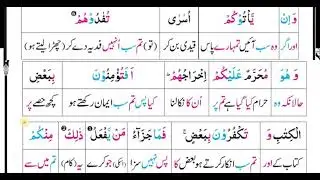 وَاِنْ يَّاْتُوْكُمْ اُسٰرٰى تُفٰدُوْهُمْ
اور اگر وہ سب آئیں تمہارے پاس قیدی بن کر (تو) تم سب اُنہیں فدیہ دے کر (چھڑا لیتے ہو)
وَ هُوَ مُحَرَّمٌ عَلَيْكُمْ اِخْرَاجُهُمْ ؕ اَفَتُؤْمِنُوْنَ بِبَعْضِ
حالانکہ وہ حرام کیا گیا ہے تم پر اُن کا نکالنا کیا پس تم سب ایمان رکھتے ہو کچھ حصے پر
الْكِتٰبِ وَ تَكْفُرُوْنَ بِبَعْضٍ ۚ فَمَا جَزَآءُ مَنْ يَّفْعَلُ ذٰلِكَ مِنْكُمْ
کتاب کے اور تم سب انکار کرتے ہو بعض کا پس نہیں سزا (اسکی) جو کرے یہ (کام) تم میں سے